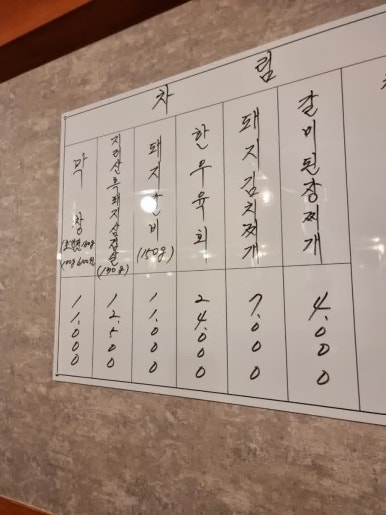 차 림
막창
11,000
지리산흑돼지삼겹살
12,500
돼지갈비
(150g)
11,000
한우육회
24,000
돼지김치찌개
7,000
갈비된장찌개
4,000